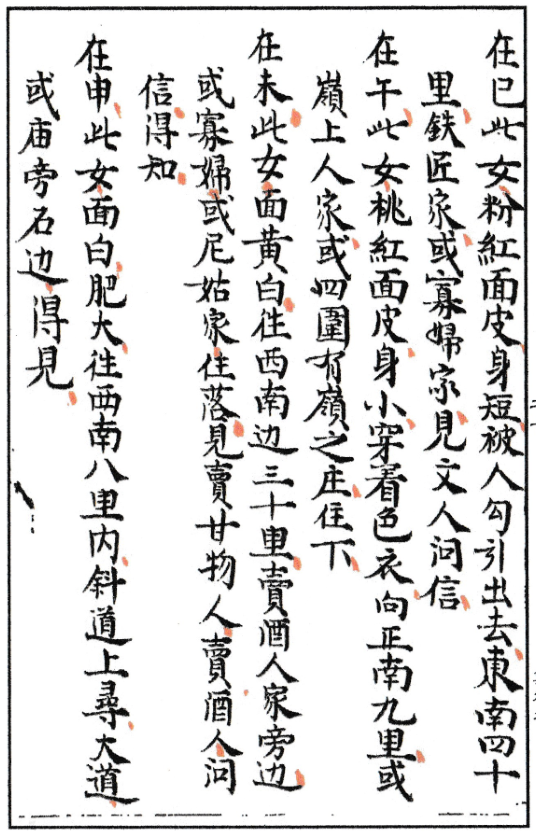 在巳此女粉紅面皮身短被人勾引出去東南四十
里鉄匠家或寡婦家見文人问信
在午此女桃紅面皮身小穿着色衣向正南九里或
嶺上人家或四圍有嶺之庄住下
在未此女面黄白往西南边三十里賣酒人家旁边
或寡婦或尼姑家住落見賣甘物人賣酒人问
信得知
在申此女面白肥大往西南八里内斜道上尋大道
或庙旁石边得見